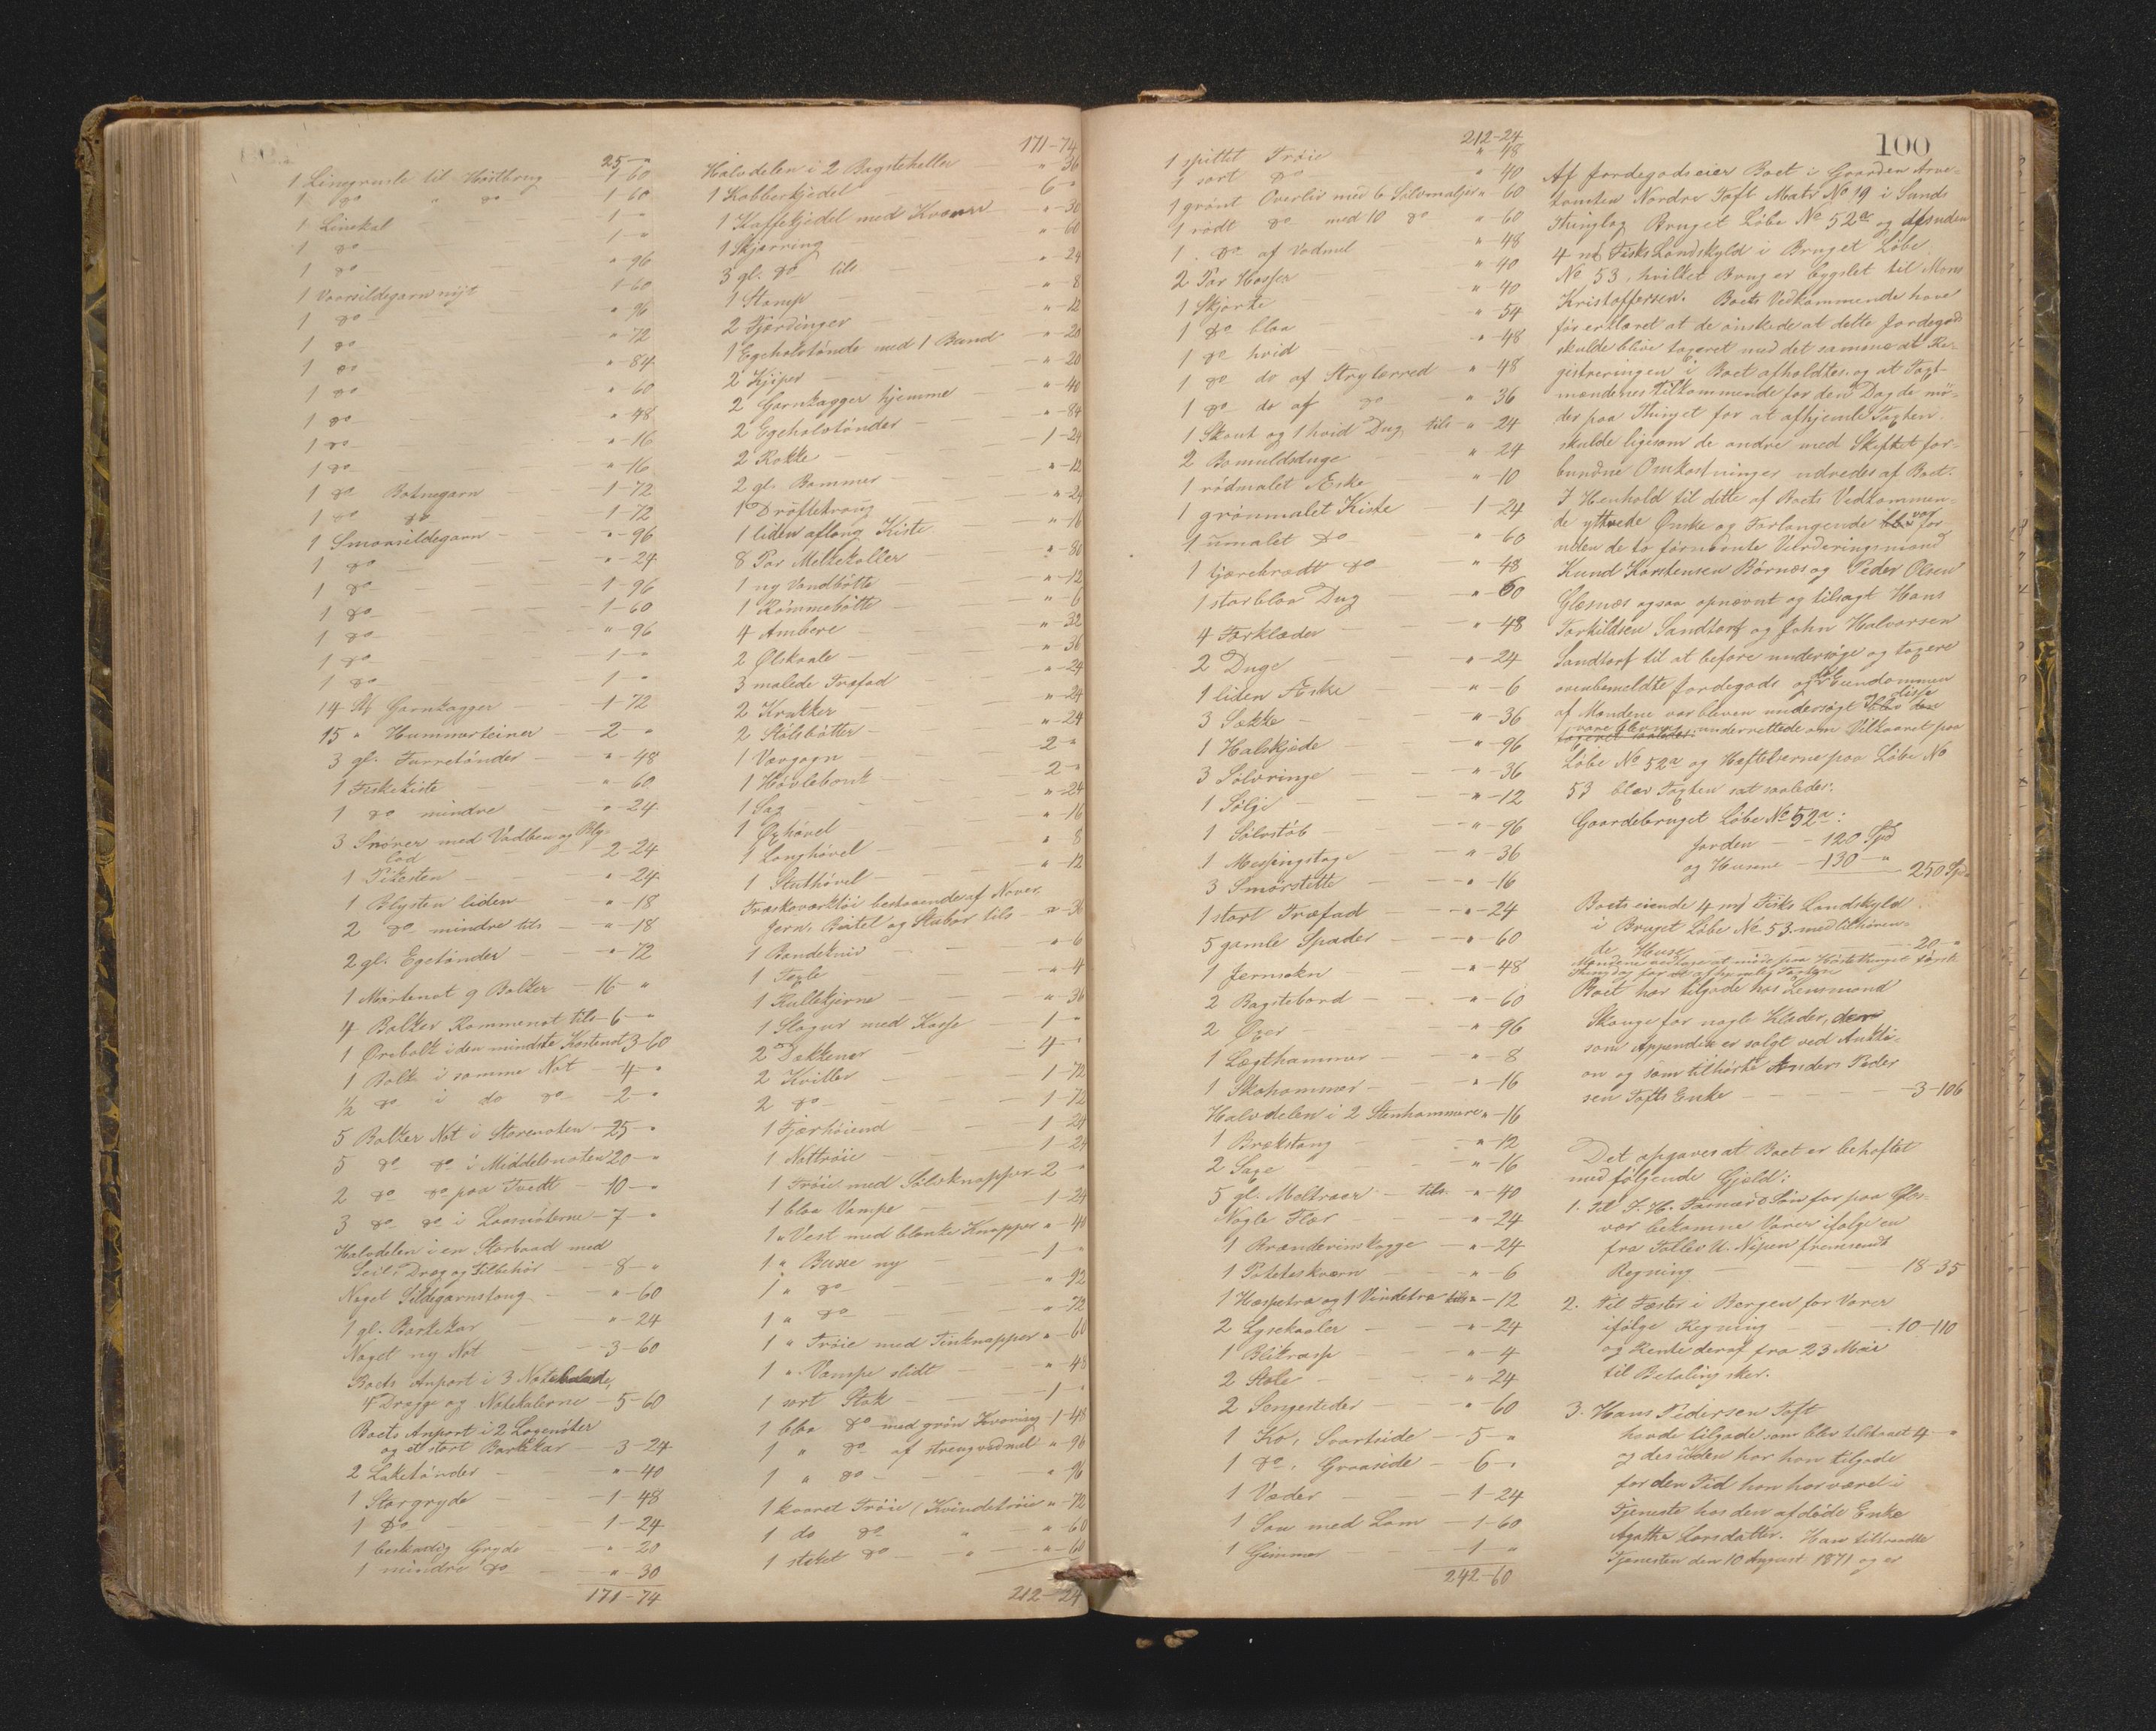 25-"
1 Lingrusle til Høstbrug 1-60
1 do " do 1-60
1 Linekal 1-"
1 do 1-"
1 do "-96
1 Vaarsildegarn nyt 1-60
1 do "-96
1 do "-72
1 do "-84
1 do "-60
1 do "-48
1 do "-16
1 do "-16
1 do Botnegarn 1-72
1 do do 1-72
1 Smaasildegarn "-96
1 do "-24
1 do 1-96
1 do 1-60
1 do "-96
1 do 1-"
1 do 1-"
14 St Garnkagger 1-72
15 " Hummerteiner 2-"
3 gl. Furretønder "-48
1 Fiskekiste "-60
1 do mindre "-24
3 Snører med Vadben og Bly-
lod 2-24
1 Pikesten "-24
1 Blysten liden "-18
2 do mindre tils "-18
2 gl. Egetønder "-72
1 Mortenot 9 Bolker 16-"
4 Bolker Rammenot tils 6-"
1 Ørebolk i den mindste Kastenot 3-60
1 Bolk i samme Not 4-"
½ do i do do 2-"
5 Bolker Not i Storenoten 25-"
5 do do i Middelnoten 20-"
2 do do paa Tvedt 10-"
3 do do i Laasnøterne 7-"
Halvdelen i en Storbaad med
Seil, Dreg og Tilbehør 8-"
Noget Sildegarnstoug "-60
1 gl. Barkekar "-24
Noget ny Not 3-60
Boets Anport i 3 Notebaade,
4 Dregge og Notekalerne 5-60
Boets Anport i 2 Logenøter
og et stort Barkekar 3-24
2 Laketønder "-40
1 Storgryde 1-48
1 do 1-24
1 beskadig Gryde "-20
1 mindre do "-30
171-74
171-74
Halvdelen i 2 Bagsteheller "-36
1 Kobberkjedel 6-"
1 Kaffekjedel med Kværn "-30
1 Skjerring "-60
3 gl. do tils "-24
1 Stamp "-8
2 Fjerdinger "-12
1 Egeholstønde med 1 Bund "-20
2 Kjiper "-20
2 Garnkagger hjemme "-40
2 Egeholstønder "-84
2 Rokke 1-24
2 gl. Bommer "-12
1 Drøftetroug "-24
1 liden aflang Kiste "-16
8 Par Melkekoller "-80
1 ny Vandbøtte "-12
1 Rømmebøtte "-6
4 Ambere "-32
2 Ølskaale "-36
3 malede Træfad "-24
2 Krakker "-24
2 Stølsbøtter "-24
1 Vævgogn 2-"
1 Høvlebenk 2-"
1 Sag "-24
1 Øghøvel "-16
1 Langhøvel "-8
1 Sluthøvel "-12
Træskoverktøi bestaaende af Naver,
Jern, Beitel og Stabor tils "-36
1 Bandekniv "-6
1 Tegle "-4
1 Rullekjerne "-36
1 Slagur med Kasse 1-"
2 Dekkener 4-"
2 Kviller 1-72
2 do 1-72
1 Fjærhøiend 1-24
1 Nattrøie 1-24
1 Trøie med Sølvknapper 2-"
1 blaa Vampe 1-24
1 " Vest med blanke Knapper "-40
1 " Buxe ny 1-"
1 " do "-92
1 " do "-72
1 " Trøie med Tinknapper "-60
1 " Vampe slidt "-48
1 sort Stak 1-"
1 blaa do med grøn Kvaring 1-48
1 " do af strengvadmel "-96
1 " do "-96
1 kaaret Trøie (Kvindetrøie "-72
1 do do " "-60
1 støket do " "-60
212-24
212-24
1 spittet Trøie "-48
1 sort do "-40
1 grønt Overliv med 6 Sølvmaljer "-60
1 rødt do med 10 do "-60
1 do af Vadmel "-48
2 Par Hosser "-40
1 Skjorte "-40
1 do blaa "-54
1 do hvid "-48
1 do do af Strylærred "-48
1 do do af do "-36
1 Skaut og 1 hvid Dug tils "-24
2 Bomuldsduge "-24
1 rødmalet Æske "-10
1 grønmalet Kiste 1-24
1 umalet do "-60
1 tjærebrædt do "-48
1 stor blaa Dug "-60
4 Forklæder "-48
2 Duge "-24
1 liden Æske "-6
3 Sække "-36
1 Halskjæde "-96
3 Sølvringe "-36
1 Sølje "-12
1 Sølvstøb "-96
1 Messingstage "-36
3 Smørstette "-16
1 stort Træfad "-24
5 gamle Spader "-60
1 Jernsokn "-48
2 Bagstebord "-60
2 Øxer "-96
1 Lægthammer "-8
1 Skohammer "-16
Halvdelen i 2 Stenhammere "-16
1 Brækstang "-12
2 Sage "-16
5 gl. Meltraaer tils. "-40
Nogle Flær "-24
1 Brændevinskagge "-24
1 Poteteskværn "-6
1 Hæspetræ og 1 Vindetræ tils "-12
2 Lysekaaler "-24
1 Blikrasp "-4
2 Stole "-24
2 Sengesteder "-60
1 Ko, Svartside 5-"
1 do, Graaside 6-"
1 Væder 1-24
1 Sau med Lam 1-60
1 Gimmer 1-"
242-60
100
Af Jordegods eier Boet i Gaarden Arve-
tomten Nordre Toft Matr No 19 i Sunds
Thinglag Bruget Løbe No 52a og desuden
4 ml Fisks Landskyld i Bruget Løbe
No 53, hvilket Brug er bygslet til Mons
Kristoffersen. Boets Vedkommende have
før erklæret at de ønskede at dette Jordegods
skulde blive taxeret med det samme at Re-
gistreringen i Boet afholdtes, og at Taxt-
mændenes Tilkommende for den Dag de mø-
der paa Thinget for at afhjemle Taxten.
skulde ligesom de andre med Skiftet for-
bundne Omkostninger udredes af Boet.
I Henhold til dette af Boets Vedkommen-
de yttrede Ønske og Forlangende var for
uden de to førnævnte Vurderingsmænd
Knud Karstensen Børnæs og Peder Olsen
Glesnæs ogsaa opnævnt og tilsagt Hans
Torkildsen Sandtorf og John Halvorsen
Sandtorf til at befare undersøge og taxere
ovenbemeldte Jordegods og da Eiendommen
af Mændene var bleven undersøgt og disse
vare blevne underrettede om Vilkaaret paa
Løbe No 52a og Heftelserne paa Løbe No
53 blev Taxten sat saaledes:
Gaardebruget Løbe No 52a:
Jorden 120 Spd
og Husene 130 " 250 Spd
Boets eiende 4 ml Fisks Landskyld
i Bruget Løbe No 53 med tilhøren-
de Huse 20-"
Mændene vedtage at møde paa Høstethinget første
Thingdag for at afhjemle Taxten
Boet har tilgode hos Lensmand
Skauge for nogle Klæder,
som Appendix er solgt ved Aukti-
on og som tilhørte Anders Peder
sen Tofts Enke 3-106
Det opgaves at Boet er behæftet
med følgende Gjæld:
1. Til F. H. & Søn for paa Gles-
vær bekomne Varer ifølge en
fra Tollev U. Nipen fremsendt
Regning 18-35
2. Til Fæster i Bergen for Varer
ifølge Regning 10-110
og Rente deraf fra 23 Mai
til Betaling sker.
3. Hans Pedersen Toft
havde tilgode som blev tilstaaet 4-"
og desuden har han tilgode
for den Tid han har været i
Tjeneste hos den afdøde Enke
Agathe Larsdatter. Han tiltraadte
Tjenesten den 10 August 1871 og er